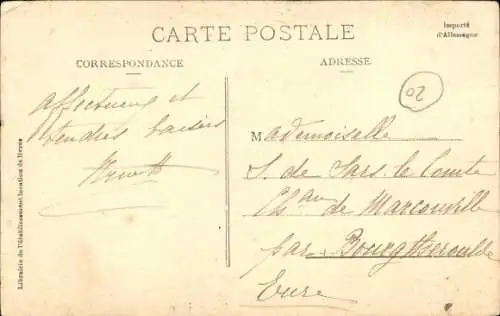 CARTE POSTALE
Importé
d'Allemagne
CORRESPONDANCE
ADRESSE
02
Affectueux et
tendres baisers
Mademoiselle
S. de Sars le Comte
Chau de Marcouville
par Bourgtheroulde
Eure
Librairie de l'établissement et location de livres